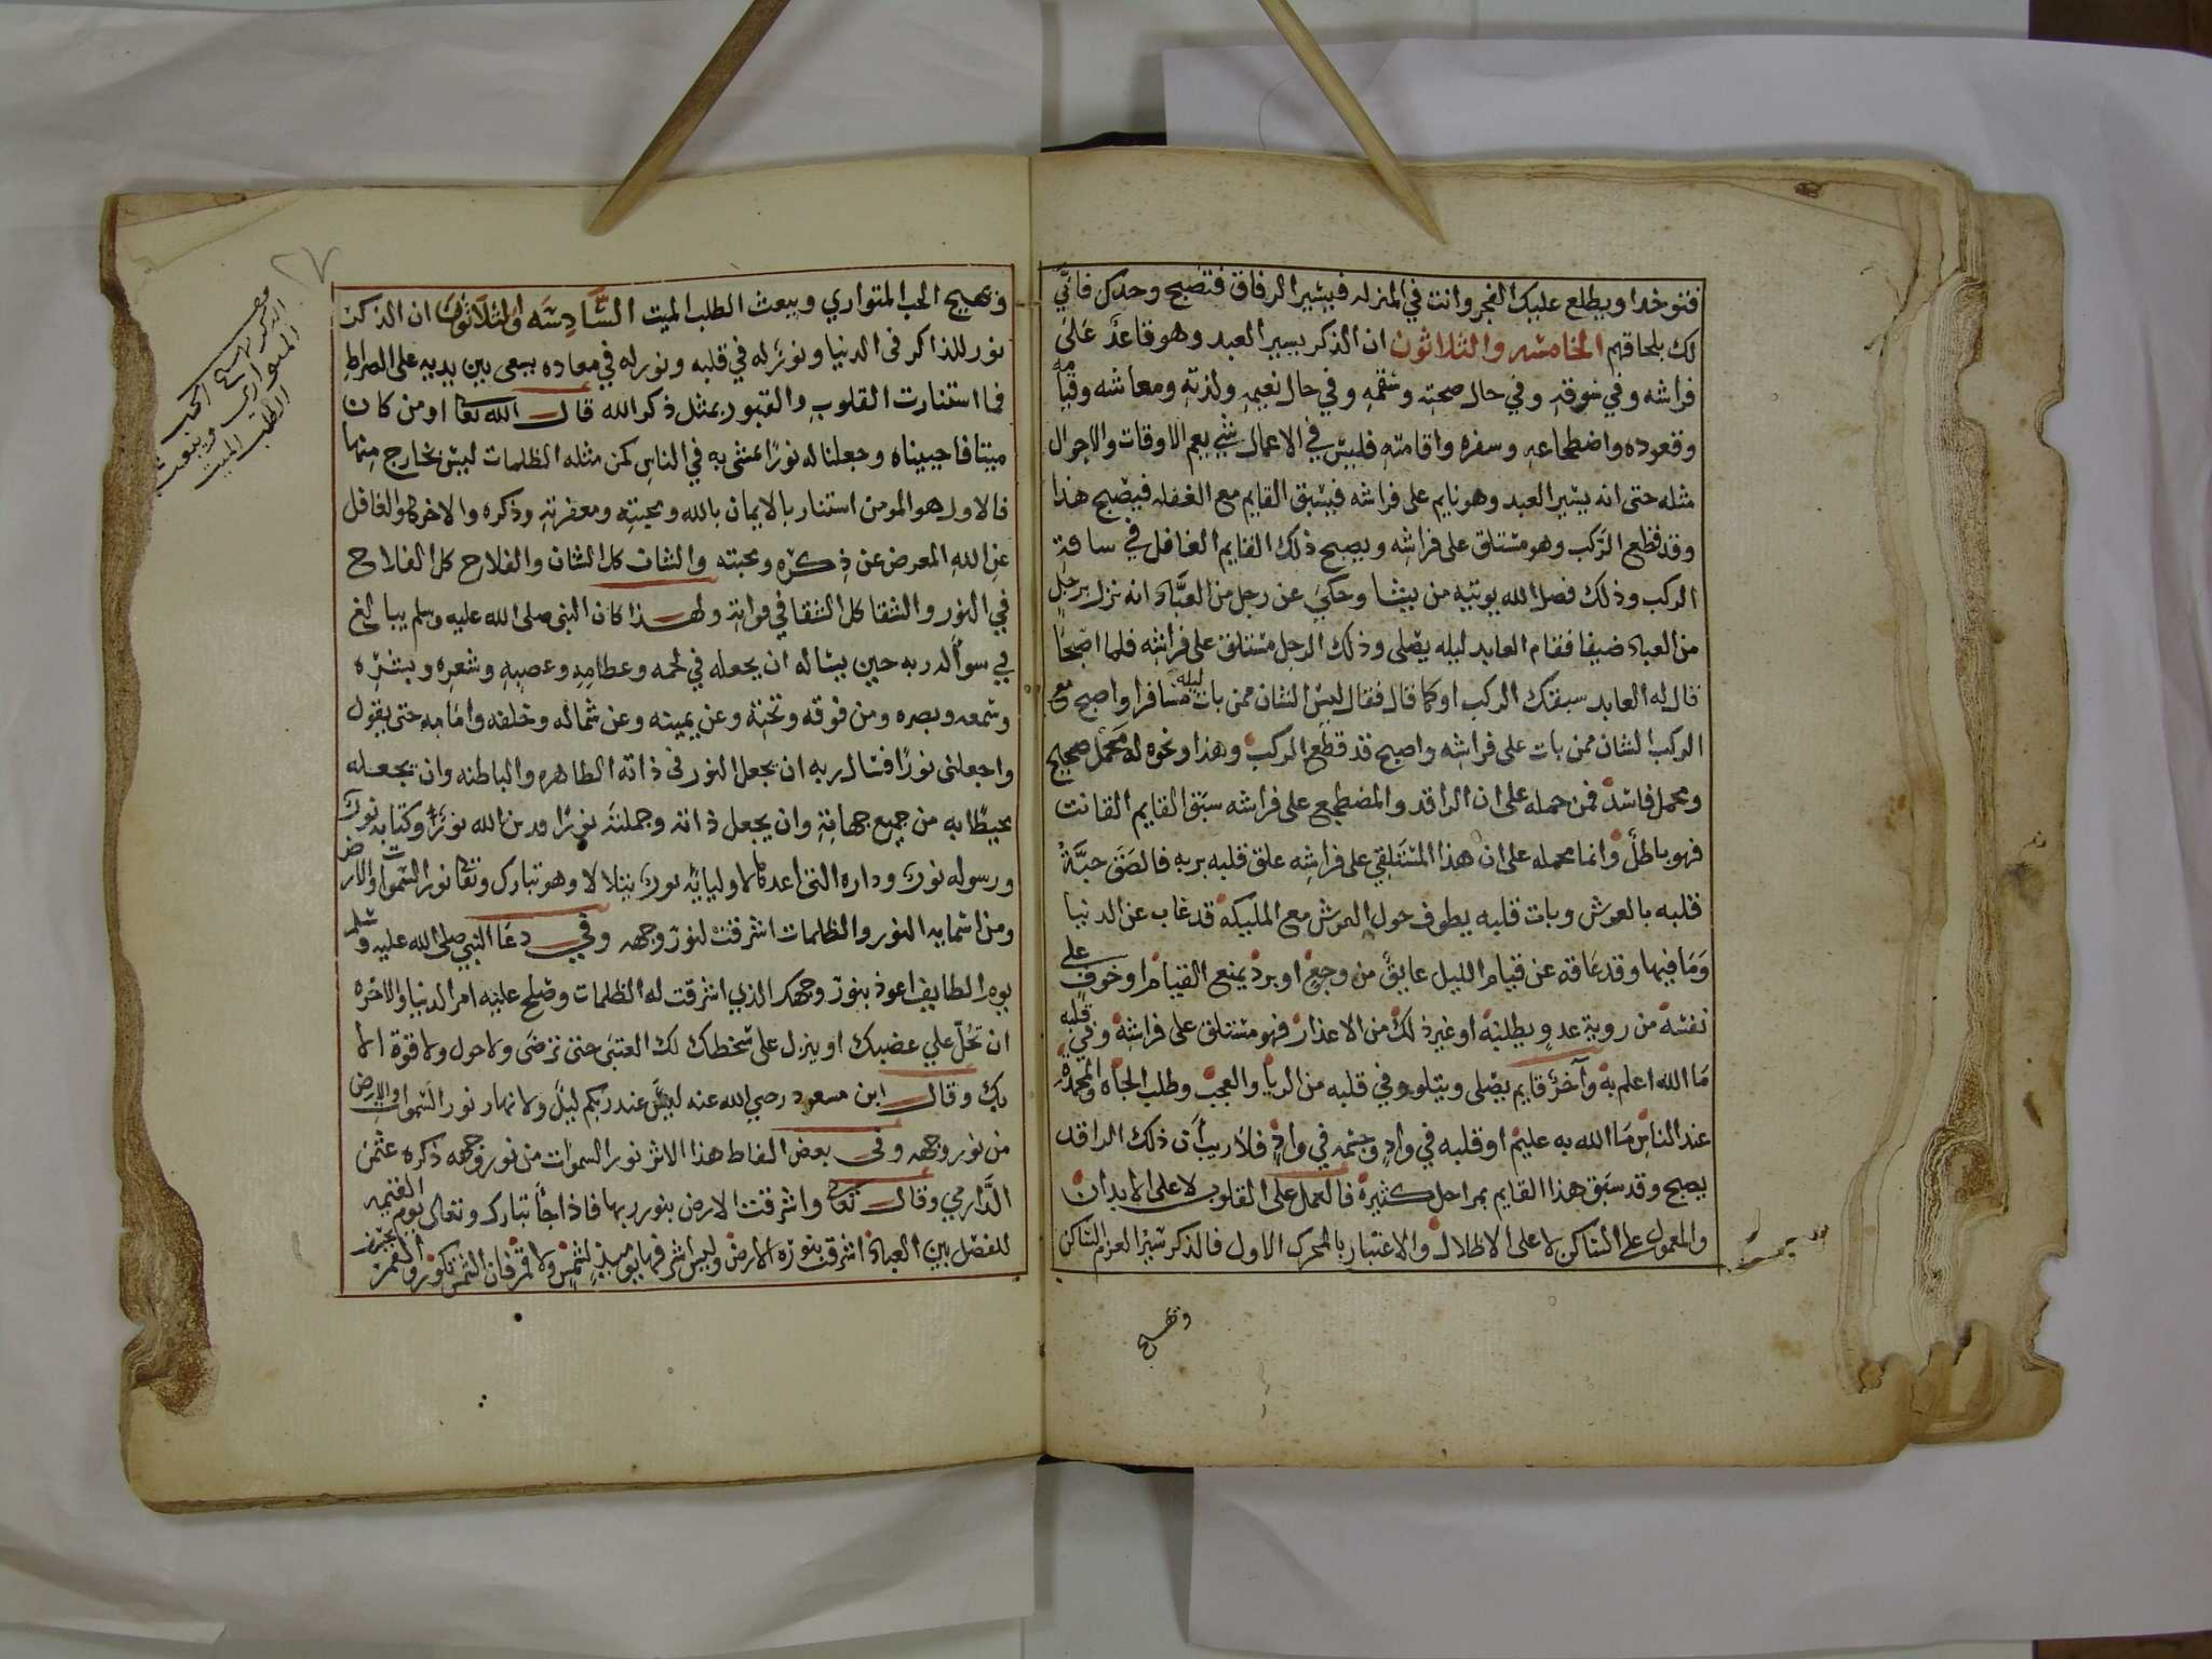 فتوخدا ويطلع عليك الفجر وانت في المنزله فيشير الرفاق فتصبح وحدك فانّي
لك بلحاقهم الخامسه والثلاثون ان الذكر يسير العبد وهو قاعدٌ عَلى
فراشه وفي سوقه وفي حال صحته وسقمه وفي حال نعيمه ولذته ومعاشه وقيامه
وقعوده واضطجاعه وسفره واقامته فليس في الاعمال شي يعم الاوقات والاحوال
مثله حتى انه يسير العبد وهو نايم على فراشه فيسبق القايم مع الغفله فيصبح هذا
وقد قطع الركب وهو مستلق على فراشه ويصبح ذلك القايم الغافل في ساقة
الركب وذلك فضل الله يوتيه من يشا وحكي عن رجل من العبّاد انه نزل برجل
من العباد ضيفا فقام العابد ليله يصلى وذلك الرجل مستلق على فراشه فلما اصبحا
قال له العابد سبقك الركب او كما قال فقال ليس الشان ممن بات ليله مسافرا واصبح مع
الركب الشان ممن بات على فراشه واصبح قد قطع الركب وهذا ونحوه له محمل صحيح
ومحمل فاسد فمن حمله على ان الراقد والمضطجع على فراشه سبق القايم القانت
فهو باطل وانما محمله على ان هذا المستلقي على فراشه علق قلبه بربه فالصق حبّة
قلبه بالعرش وبات قلبه يطوف حول العرش مع المليكه قد غاب عن الدنيا
وَمَا فيها وقد عاقه عن قيام الليل عايق من وجع او برد يمنع القيام او خوف على
نفسه من روية عدو يطلبه او غير ذلك من الاعذار فهو مستلق على فراشه وفي قلبه
مَا الله اعلم به وآخر قايم يصلى ويتلو وفي قلبه من الريا والعجب وطلب الجاه والمحمدة
عند الناس مَا الله به عليم او قلبه في واد وجسمه في واد فلا ريب أن ذلك الراقد
يصبح وقد سبق هذا القايم بمراحل كثيرة فالعمل على القلوب لا على الابدان
والمعمول على الساكن لا على الاطلال والاعتبار بالمحرك الاول فالذكر يثير العزم الساكن
وتهيج
وتهيج الحب المتواري ويبعث الطلب الميت السَّادِسَه والثلاثون ان الذكر
نور للذاكر فى الدنيا ونور له في قلبه ونور له في معاده يسعى بين يديه على الصراط
فما استنارت القلوب والقبور بمثل ذكر الله قال الله تعا او من كان
ميتا فاحييناه وجعلنا له نورًا يمشى به في الناس كمن مثله الظلمات ليس بخارج منها
فالاول هو المومن استنار بالايمان بالله ومحبته ومعفرته وذكره والاخر هو الغافل
عن الله المعرض عن ذكره ومحبته والشان كل الشان والفلاح كل الفلاح
في النور والشقا كل الشقا في فواته ولهذا كان النبى صلى الله عليه وسلم يبالغ
في سوأل ربه حين يساله ان يجعله في لحمه وعظامه وعصبه وشعره وبشره
وسمعه وبصره ومن فوقه وتحته وعن يمينه وعن شماله وخلفه وامامه حتى يقول
واجعلنى نورًا فسال ربه ان يجعل النور فى ذاته الظاهره والباطنه وان يجعله
محيطًا به من جميع جهاته وان يجعل ذاته وجملته نورًا فدين الله نورٌ وكتابه نور
ورسوله نور وداره التى اعدها لاوليايه نور يتلالا وهو تبارك وتعا نور السموات والارض
ومن اسمايه النور والظلمات اشرقت لنور وجهه وفي دعَا النبي صلى الله عليه وسلم
يوم الطايف اعوذ بنور وجهك الذي اشرقت له الظلمات وصلح عليه امر الدنيا والاخره
ان تحلّ علي غضبك او ينزل على سخطك لك العتبى حتى ترضى ولا حول ولا قوة الا
بك وقال ابن مسعود رضي الله عنه ليس عند ربكم ليل ولا نهار نور السموات والارض
من نور وجهه وفى بعض الفاظ هذا الاثر نور السموات من نور وجهه ذكره عثمن
الدَّارمي وقال تعا واشرقت الارض بنور ربها فاذا جأ تبارك وتعالى يوم القيمه
للفصل بين العباد اشرقت بنوره الارض وليس اشراقها يوميذ لشمس ولا قمر فان الشمس تكور والقمر يخسف
٢٧
الذكر يهيج الحب
المتواري ويبعث
الطلب الميت